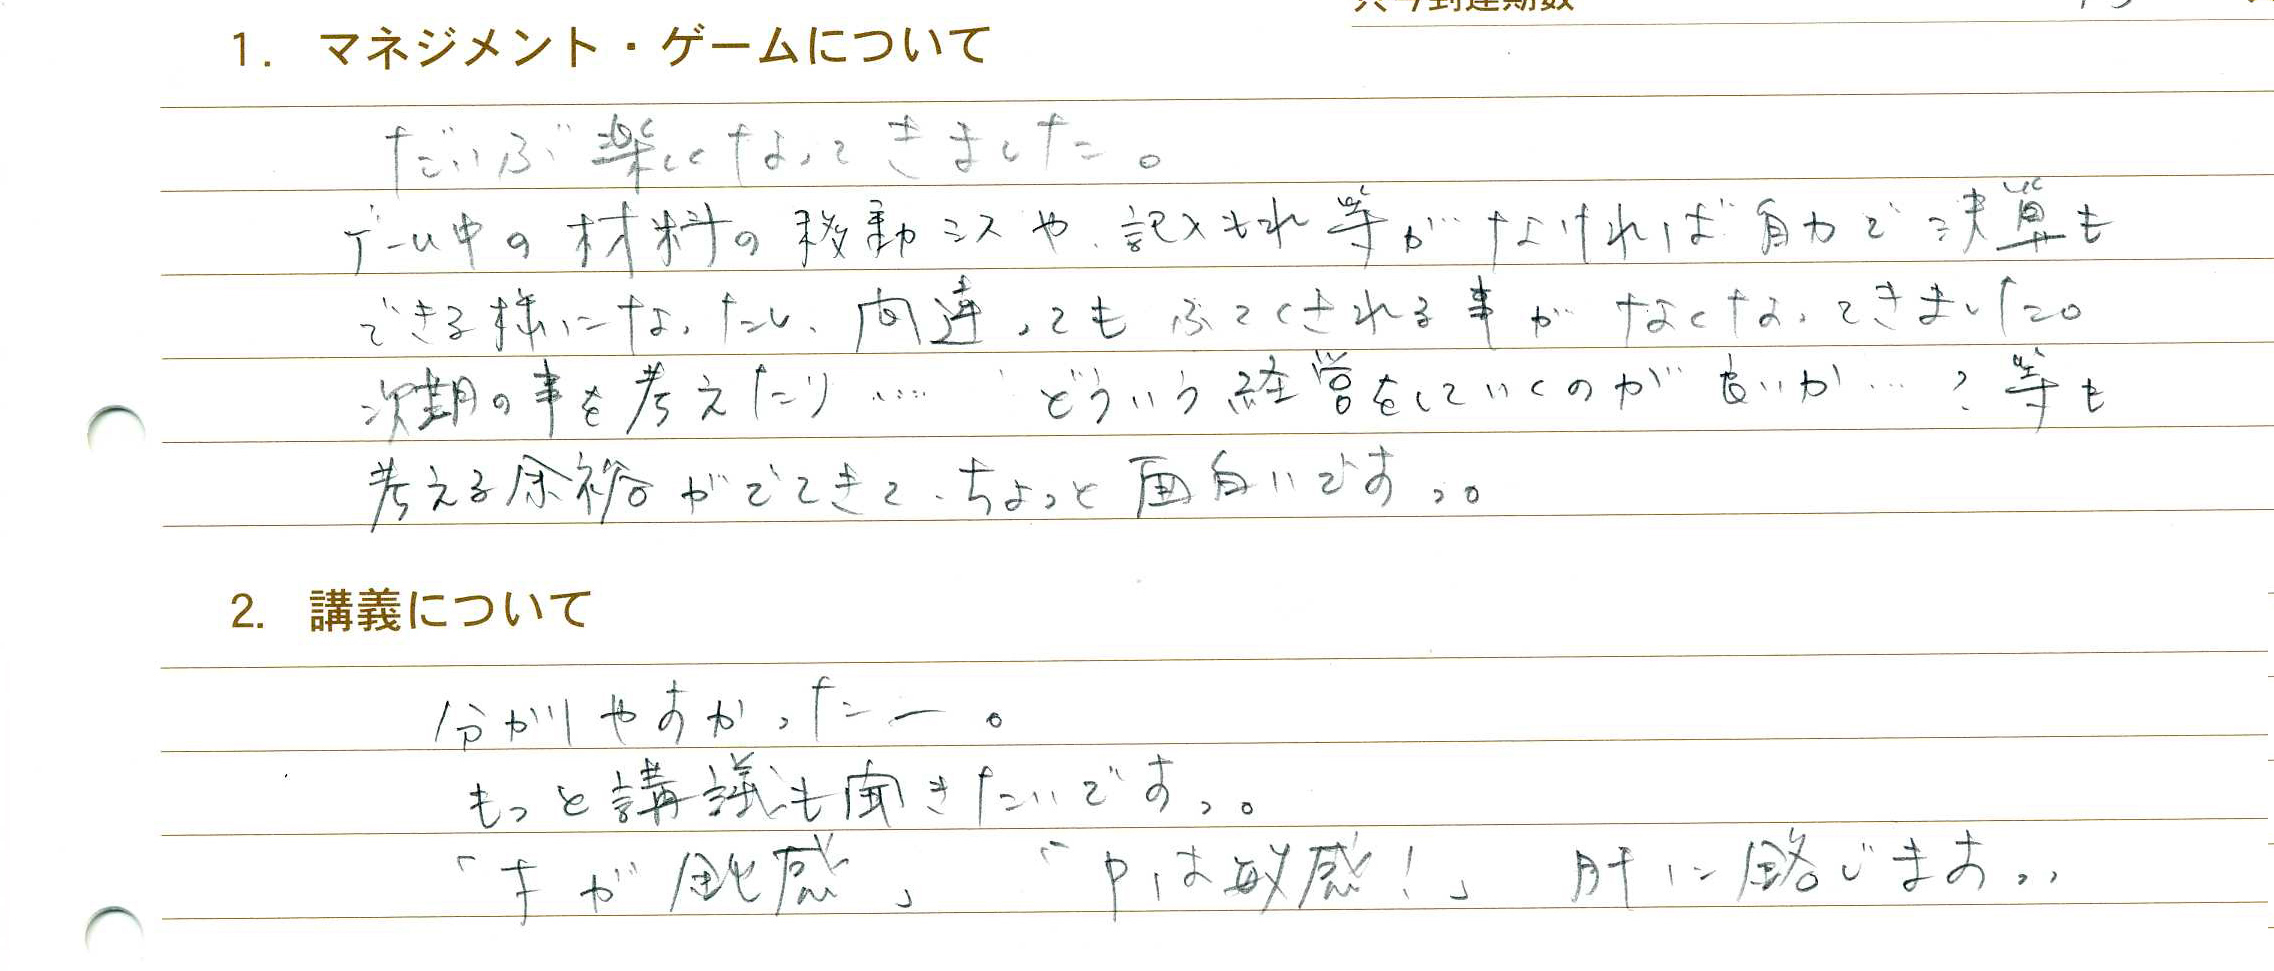 只今到達期数
1. マネジメント・ゲームについて
だいぶ楽しくなってきました。
ゲーム中の材料の移動ミスや、記入もれ等がなければ自力で決算も
できる様になったし、間違ってもふてくされる事がなくなってきました。
次期の事を考えたり…… どういう経営をしていくのが良いか…?等も
考える余裕がでてきて、ちょっと面白いですっ。
2. 講義について
分かりやすかったー。
もっと講議も聞きたいですっ。
「手が鈍感」 「中は敏感!」 肝に銘じますっ。